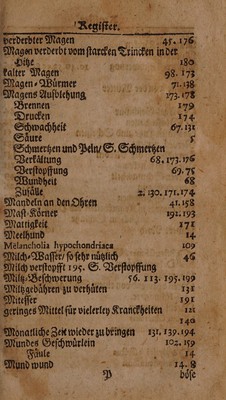 Register.
verderbter Magen 45. 176
Magen verderbt vom starcken Trincken in der
Hitze 180
kalter Magen 98. 173
Magen-Würmer 71. 138
Magens Aufblehung 173. 178
Brennen 179
Drucken 174
Schwachheit 67. 131
Säure 5
Schmertzen und Pein/ S. Schmertzen
Verkältung 68. 173. 176
Verstopffung 69. 75
Wundheit 68
Zufälle 2. 130. 171. 174
Mandeln an den Ohren 41. 158
Mast-Körner 192. 193
Mattigkeit 171
Meelhund 14
Melancholia hypochondriaca 109
Milch-Wasser/ so sehr nützlich 46
Milch verstopfft 195. S. Verstopffung
Miltz-Beschwerung 56. 113. 195. 199
Miltzgebähren zu verhüten 131
Mitesser 191
geringes Mittel für vielerley Kranckheiten 121
140
Monatliche Zeit wieder zu bringen 131. 139. 194
Mundes Geschwürlein 102. 159
Fäule 14
Mund wund 14. 8
böse